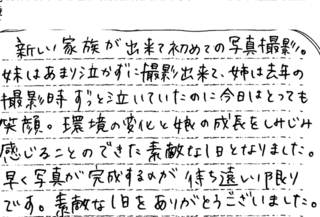 新しい家族が出来て初めての写真撮影。
妹はあまり泣かずに撮影出来て、姉は去年の
撮影時ずっと泣いていたのに今日はとっても
笑顔。環境の変化と娘の成長をしみじみ
感じることのできた素敵な1日となりました。
早く写真が完成するのが待ち遠しい限り
です。素敵な1日をありがとうございました。